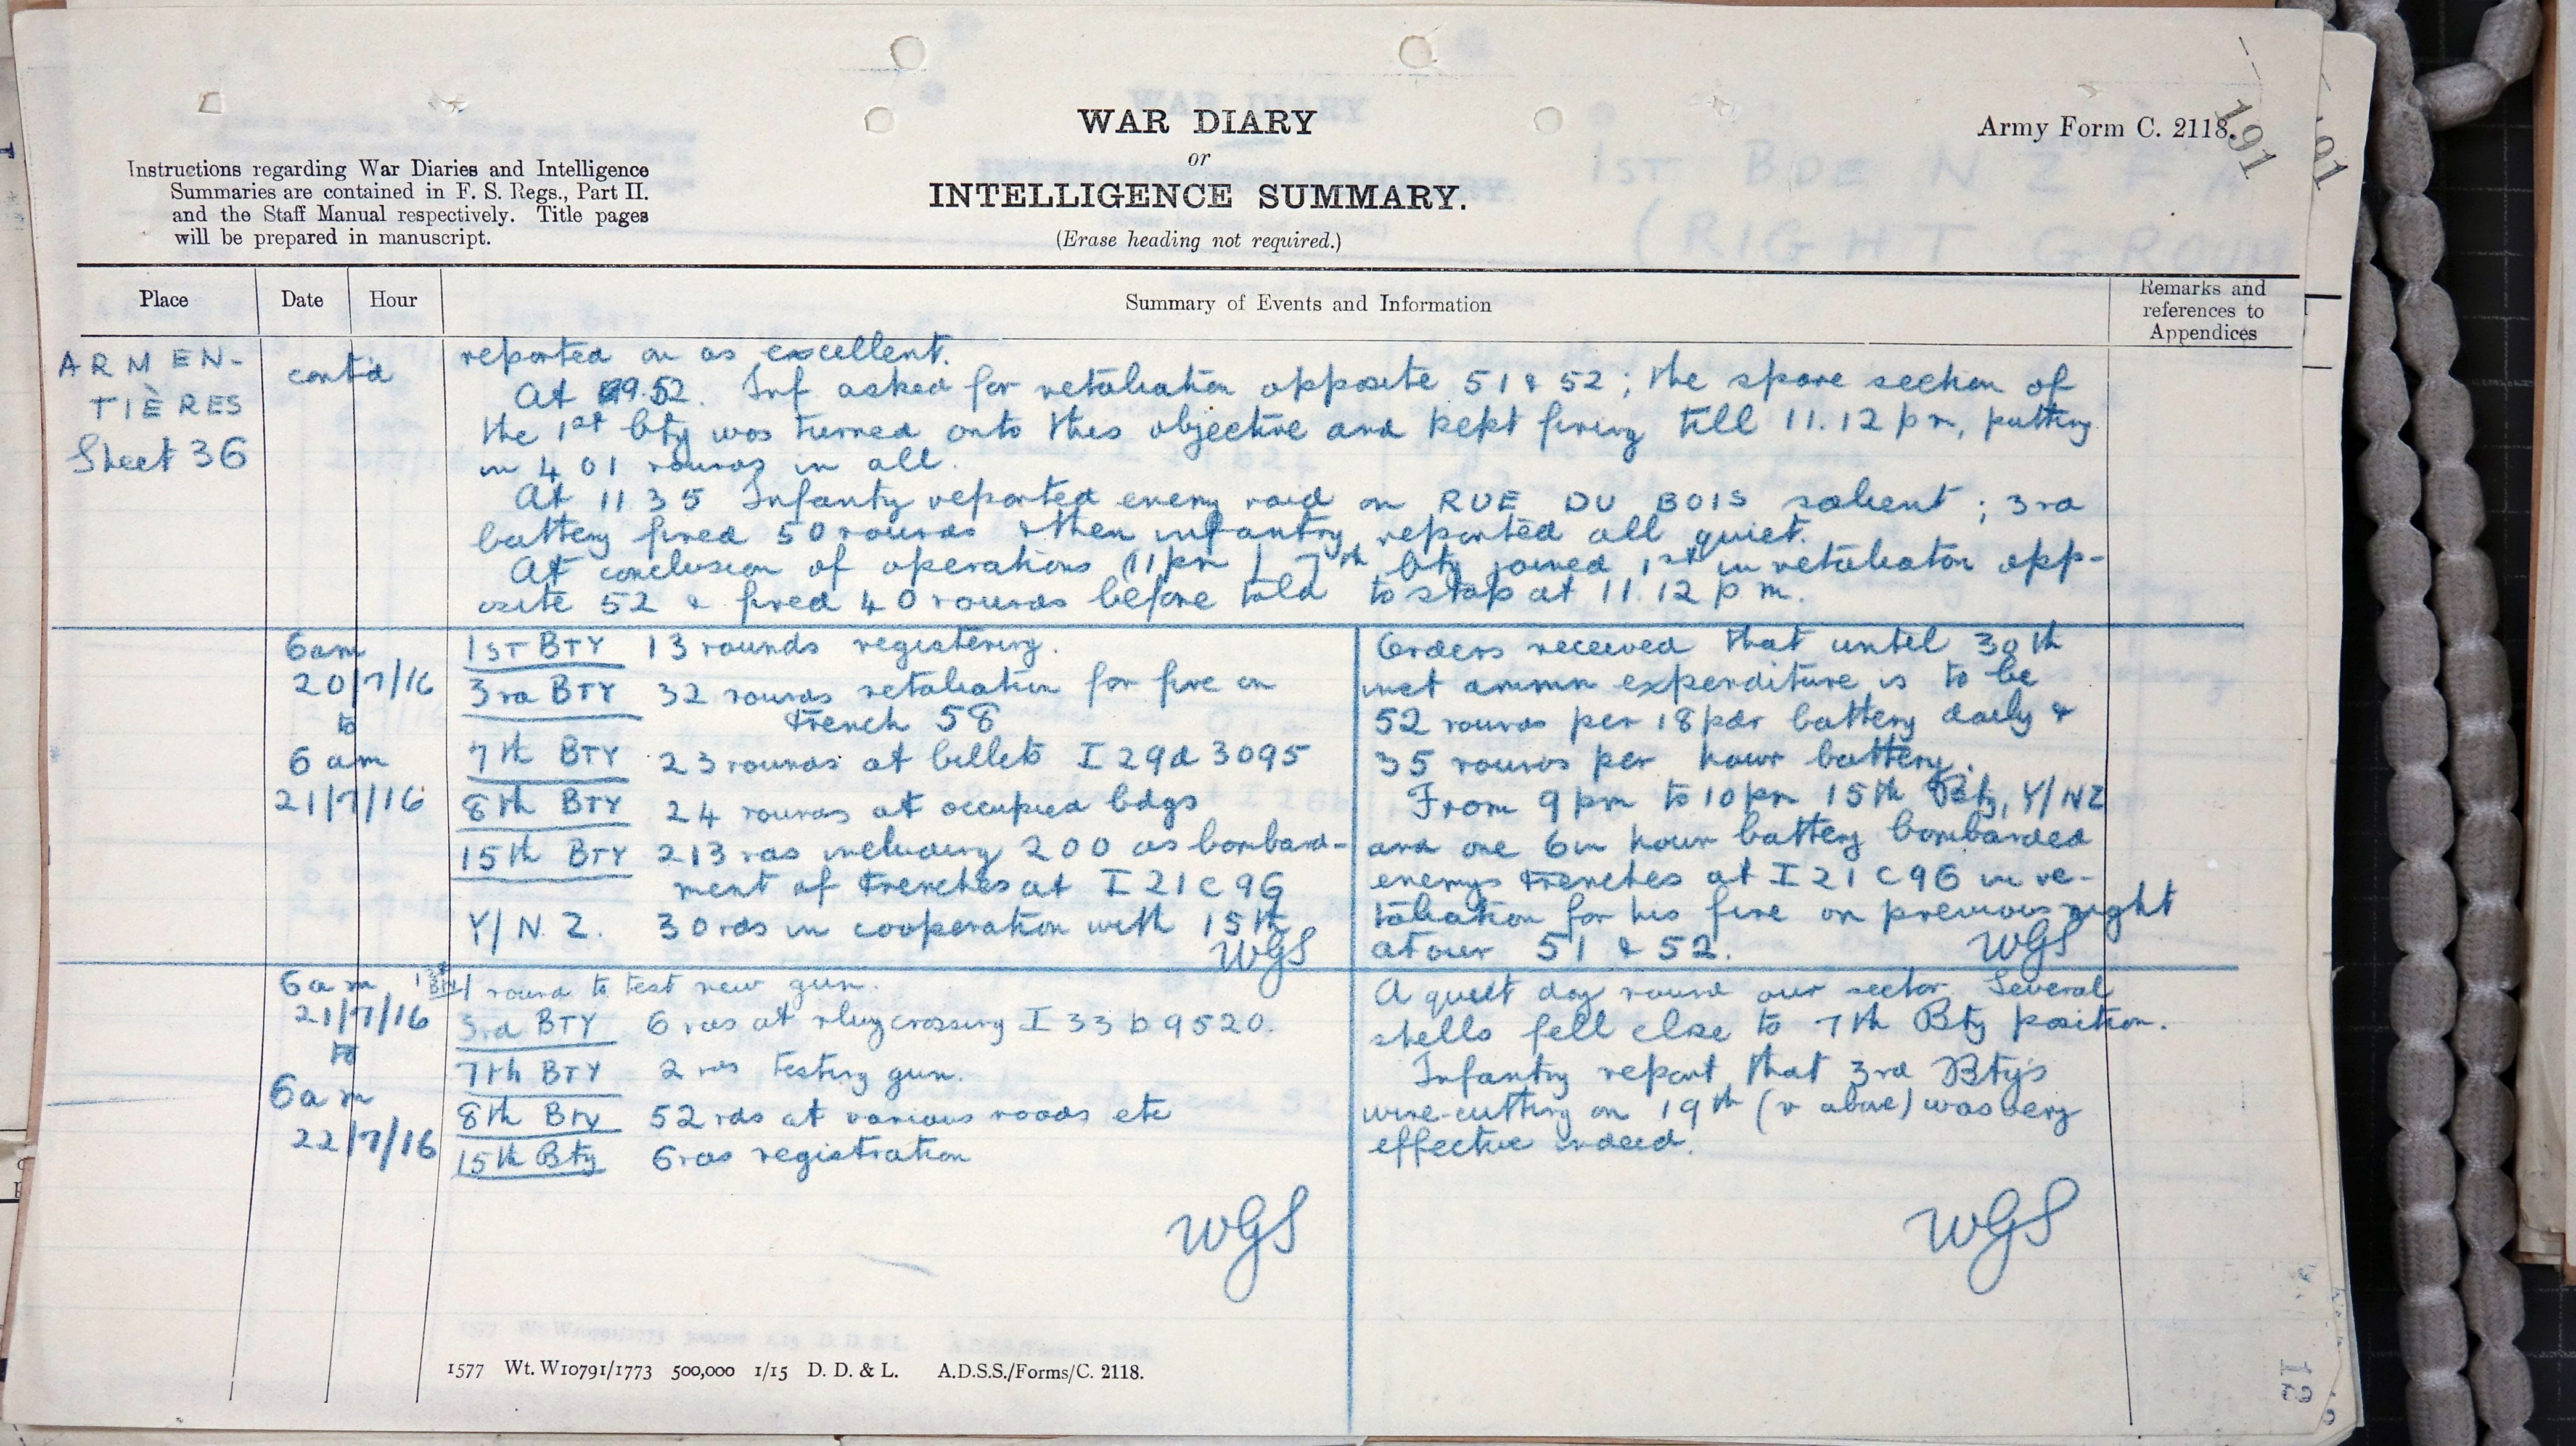 WAR DIARY
or
INTELLIGENCE SUMMARY.
(Erase heading not required.)
Army Form C. 2118.
191
Instructions regarding War Diaries and Intelligence
Summaries are contained in F. S. Regs., Part II.
and the Staff Manual respectively. Title pages
will be prepared in manuscript.
Place
Date
Hour
Summary of Events and Information
Remarks and
references to
Appendices
ARMEN-
TIÈRES
Sheet 36
cont'd
reported on as excellent.
At 9.52. Inf asked for retaliation opposite 51 & 52; the spare section of
the 1st bty was turned onto this objective and kept firing till 11.12 pm, putting
in 401 rounds in all.
At 11 35 Infanty reported enemy raid on RUE DU BOIS salient; 3rd
battery fired 50 rounds & then infantry reported all quiet.
At conclusion of operations (11pm) 7th bty joined 1st in retaliation opp-
osite 52 & fired 40 rounds before told to stop at 11.12 pm.
6am
20/7/16
to
6 am
21/7/16
1ST BTY 13 rounds registering.
3rd BTY 32 rounds retaliation for fire on
trench 58
7th BTY 23 rounds at billets I 29d 3095
8th BTY 24 rounds at occupied bdgs
15th BTY 213 rds including 200 as bombard-
ment of trenches at I 21 c 96
Y/N.Z. 30 rds in cooperation with 15th
WGS
Orders received that until 30th
inst ammn expenditure is to be
52 rounds per 18pdr battery daily &
35 rounds per howr battery.
From 9pm to 10pm 15th Bty, Y/NZ
and one 6in howr battery bombarded
enemys trenches at I 21 c 96 in re-
taliation for his fire on previous night
at our 51 & 52.
WGS
6am
21/7/16
to
6am
22/7/16
1st Bty 1 round to test new gun.
3rd BTY 6 rds at rlwy crossing I 33 b 9520.
7th BTY 2 rds testing gun.
8th Bty 52 rds at various roads etc
15th Bty 6 rds registration
WGS
A quiet day round our sector. Several
shells fell close to 7th Bty position.
Infantry report that 3rd Bty's
wire-cutting on 19th (v above) was very
effective indeed.
WGS
1577 Wt. W10791/1773 500,000 1/15 D. D. & L. A.D.S.S./Forms/C. 2118.